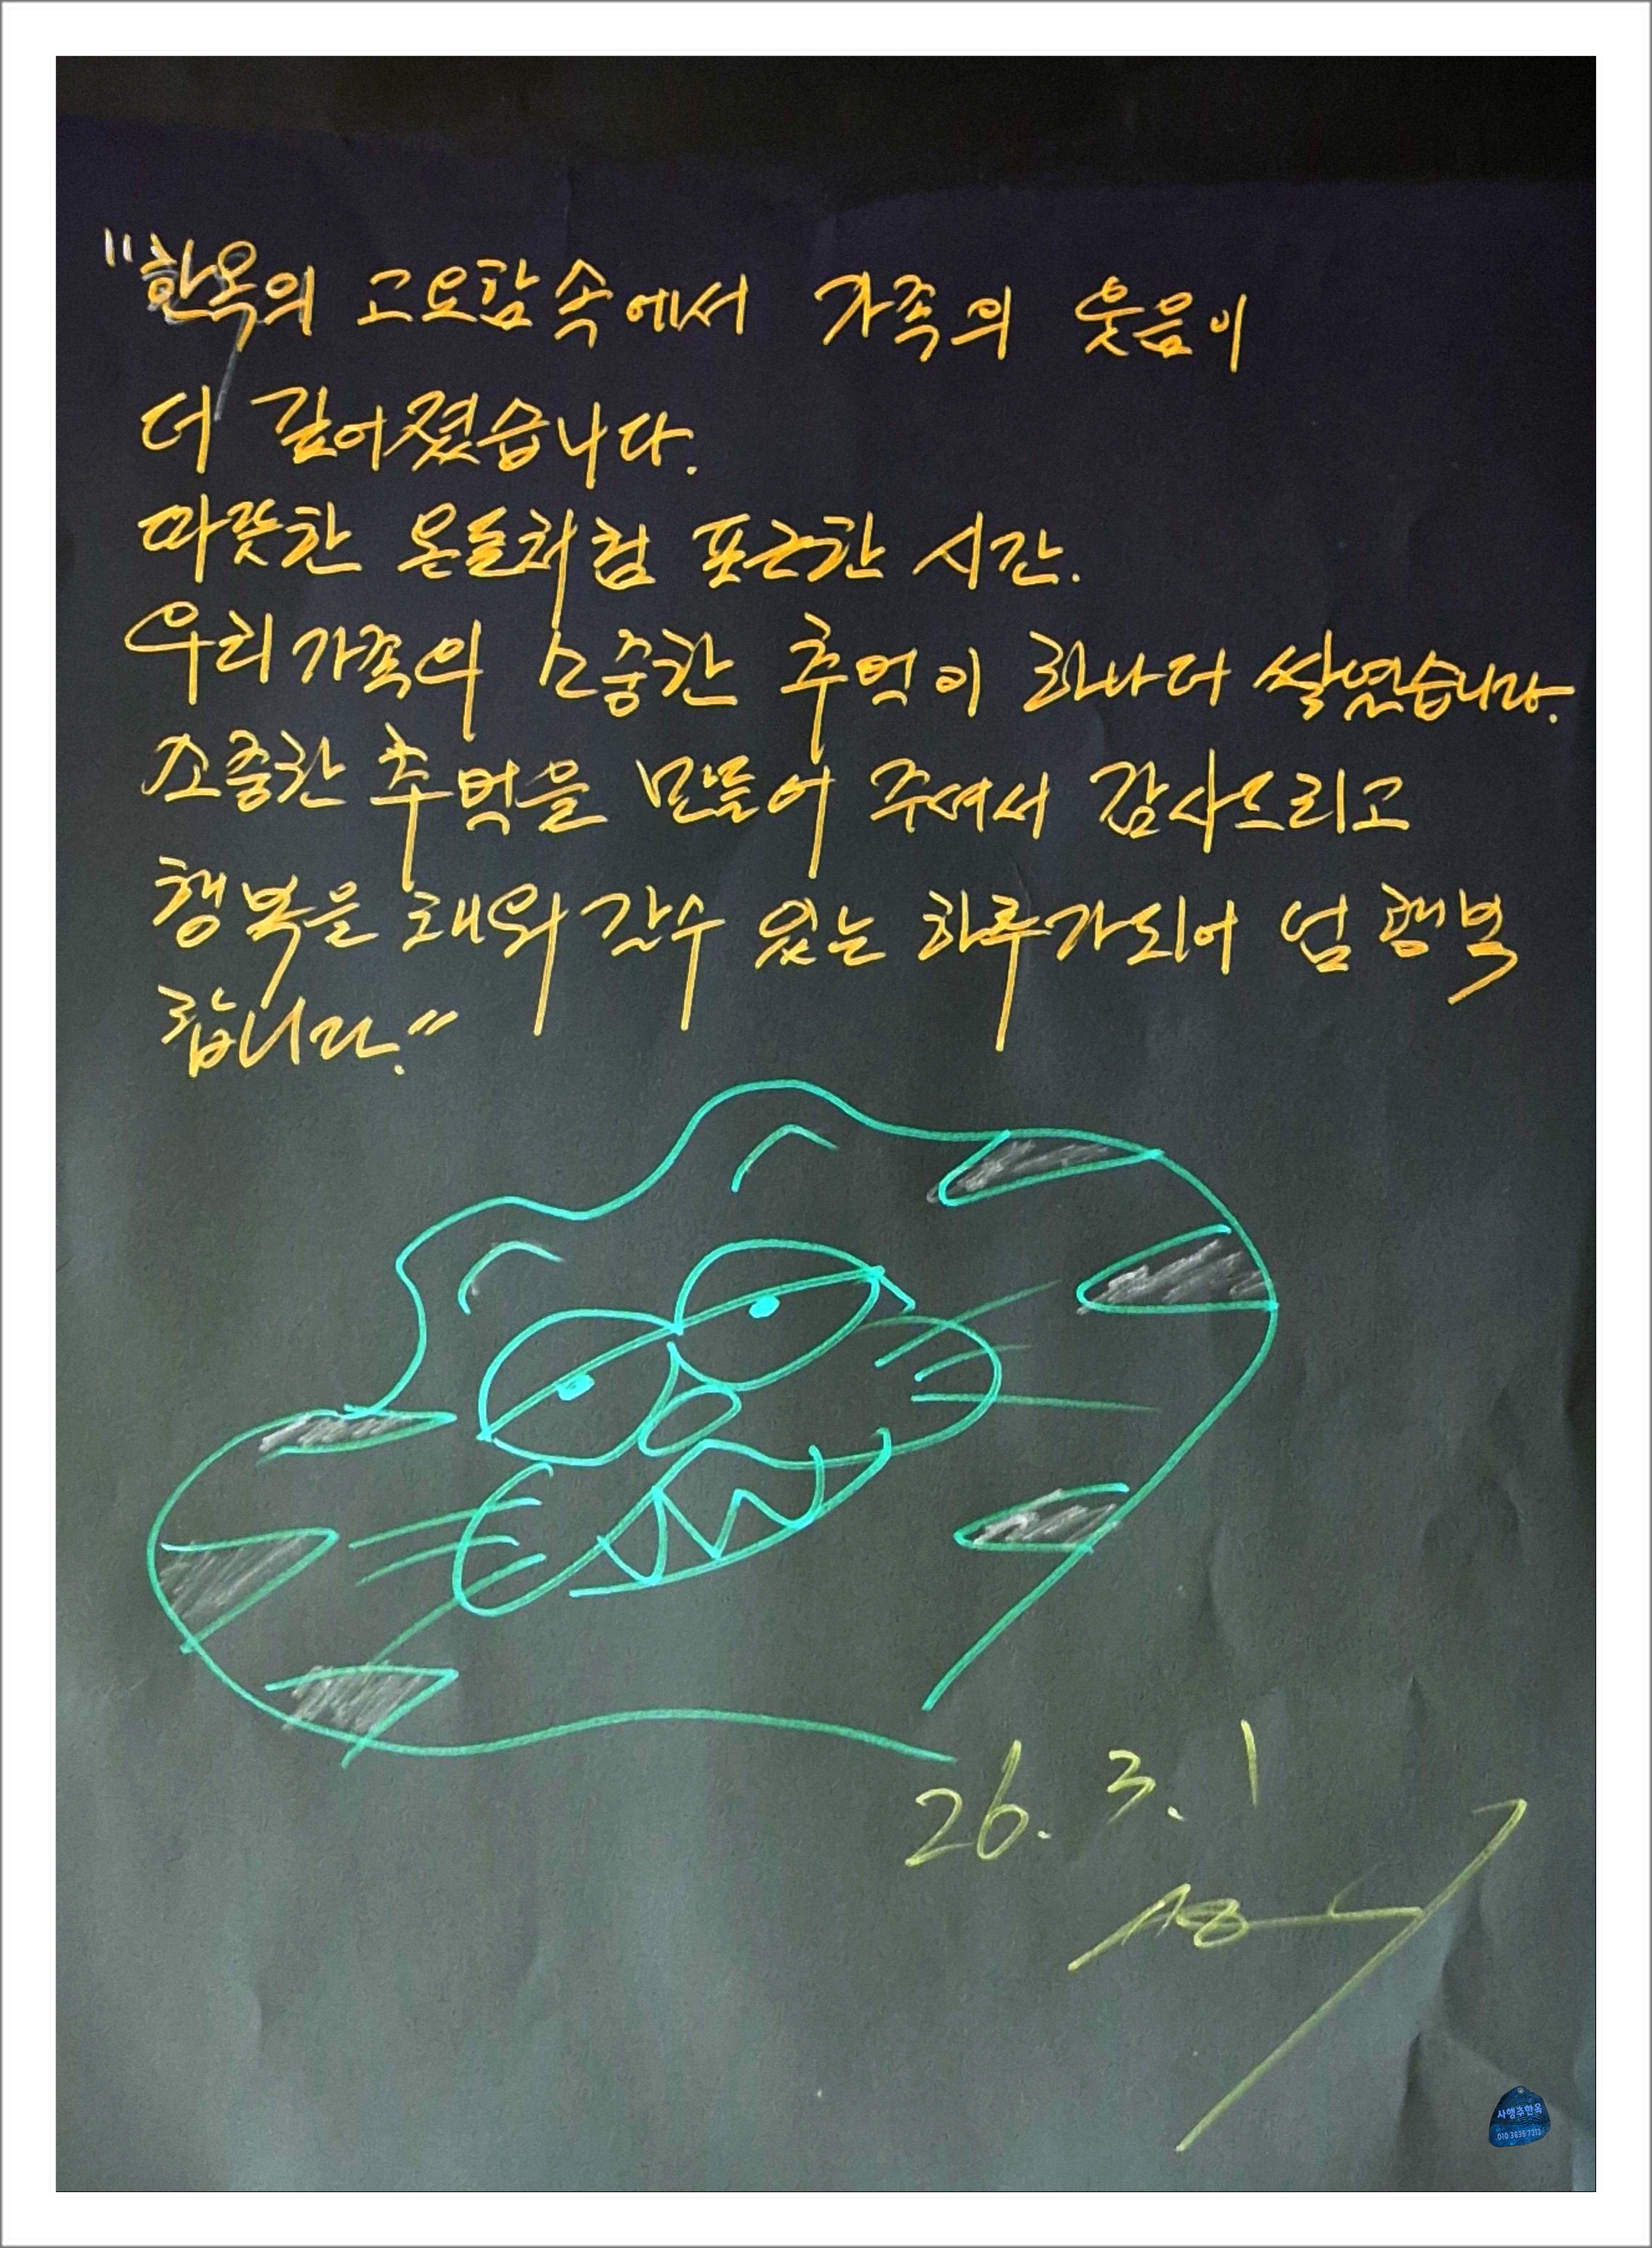 "한옥의 고요함 속에서 가족의 웃음이
더 깊어졌습니다.
따뜻한 온돌처럼 포근한 시간.
우리가족의 소중한 추억이 하나 더 쌓였습니다.
소중한 추억을 만들어 주셔서 감사드리고
행복을 채워 갈수 있는 하루가되어 넘 행복
합니다."
26. 3. 1
사행추한옥
010 3636 7313